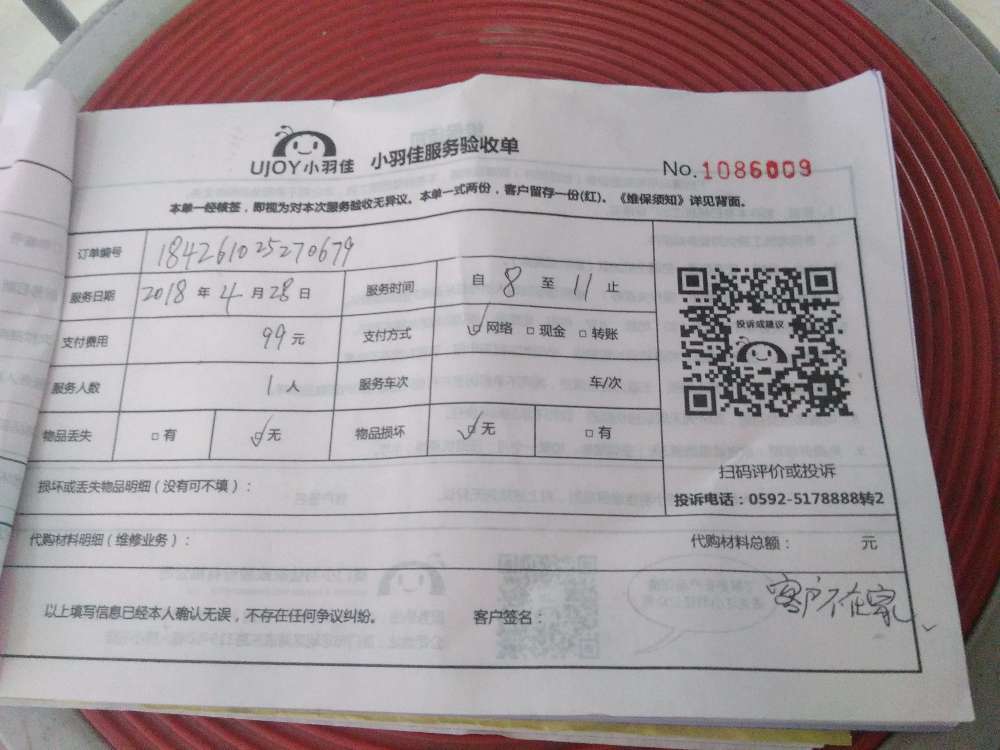 UJOY小羽佳 小羽佳服务验收单
No.1086009
本单一经核签，即视为对本次服务验收无异议。本单一式两份，客户留存一份(红)。《维保须知》详见背面。
订单编号 184261025270679
服务日期 2018 年 4 月 28 日 服务时间 自 8 至 11 止
支付费用 99 元 支付方式 ☑网络 □现金 □转账
服务人数 1 人 服务车次 车/次
物品丢失 □有 ☑无 物品损坏 ☑无 □有
投诉或建议
扫码评价或投诉
投诉电话：0592-5178888转2
损坏或丢失物品明细（没有可不填）：
代购材料明细（维修业务）： 代购材料总额： 元
以上填写信息已经本人确认无误，不存在任何争议纠纷。 客户签名： 客户不在家